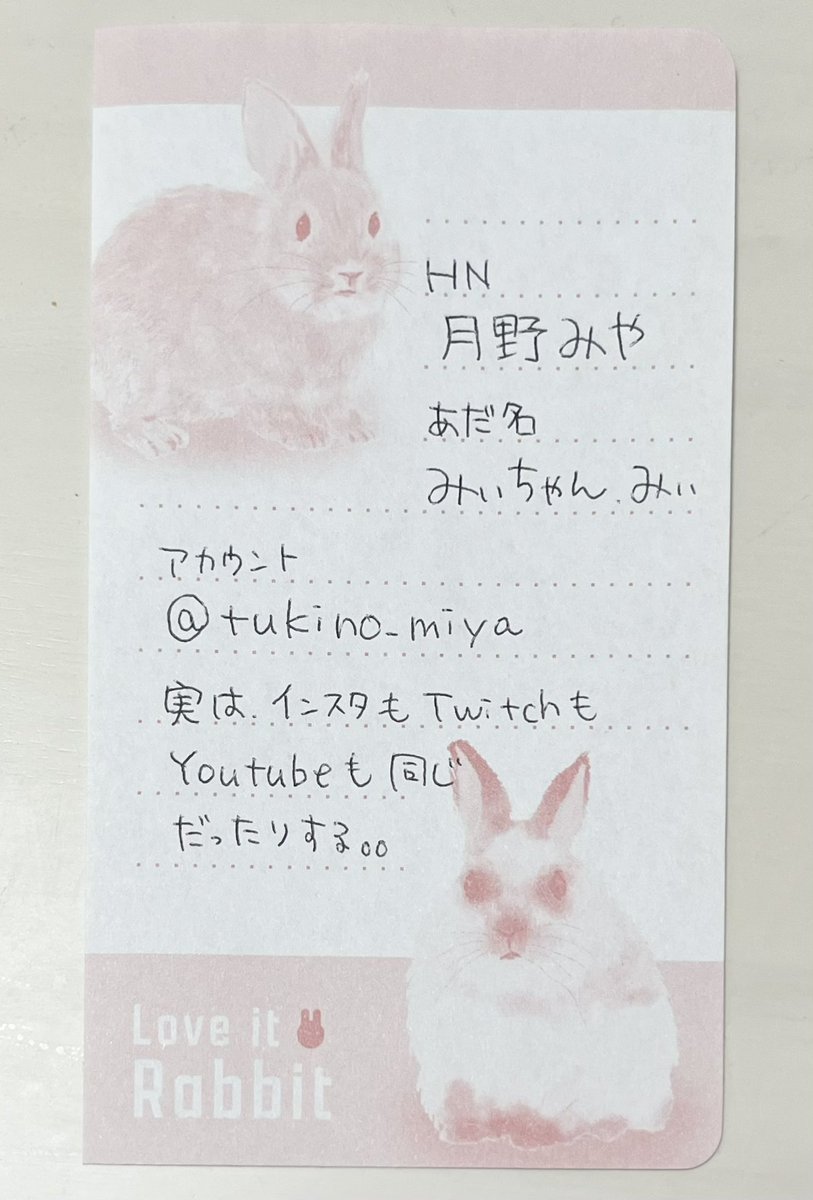 HN
月野みや
あだ名
みぃちゃん、みぃ
アカウント
@tukino_miya
実は、インスタも Twitchも
Youtubeも 同じ
だったりする。。
Love it
Rabbit